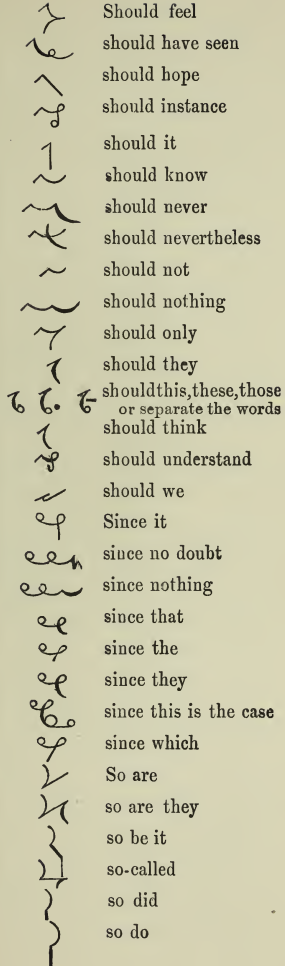 Should feel
should have seen
should hope
should instance
should it
should know
should never
should nevertheless
should not
should nothing
should only
should they
shouldthis,these,those
or separate the words
should think
should understand
should we
Since it
since no doubt
since nothing
since that
since the
since they
since this is the case
since which
So are
so are they
so be it
so-called
so did
so do